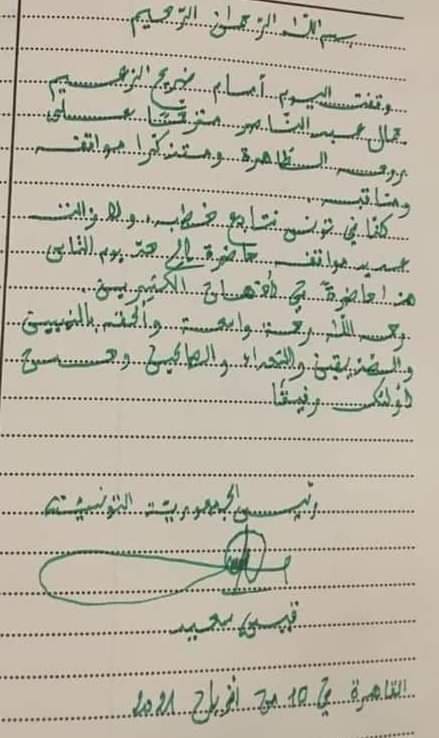 بسم الله الرحمان الرحيم
وقفت اليوم أمام ضريح الزعيم
جمال عبد الناصر مترحّمًا على
روحه الطاهرة ومتذكرا مواقفه
ومناقبه.
كنّا في تونس نتابع خطبه، ولا زالت
عديد مواقفه حاضرة إلى حدّ يوم الناس
هذا حاضرة في أذهان الكثيرين.
رحمه الله رحمة واسعة وألحقه بالنبيين
والصدّيقين والشهداء والصالحين وحسن
أولئك رفيقًا
رئيس الجمهورية التونسية
قيس سعيد
القاهرة في 10 من أفريل 2021